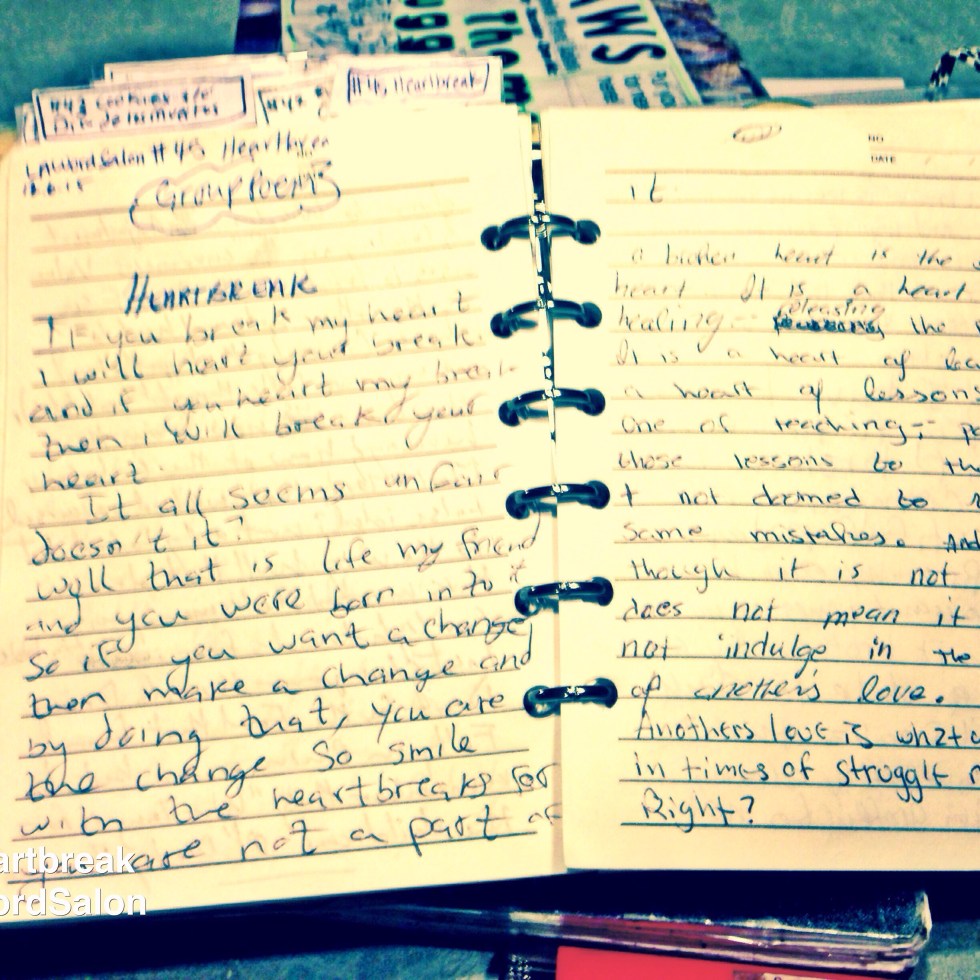 AWS
Them
#46, Heartbreak
LAWordSalon #46 Heartbreak
Group Poems
HEARTBREAK
If you break my heart
I will heart your break
and if you heart my break
then i will break your
heart.
It all seems unfair
doesn't it?
well that is life my friend
and you were born in to it
So if you want a change
then make a change and
by doing that, you are
the change So smile
with the heartbreaks for
you are not a part of
NO
DATE
it
a broken heart is the
heart It is a heart
healing - releasing the
It is a heart of
a heart of lesson
one of teaching;
those lessons to
+ not doomed to
same mistakes. And
though it is not
does not mean it
not indulge in the
of another's love.
Anothers love is
in times of struggle
Right?
artbreak
ordSalon